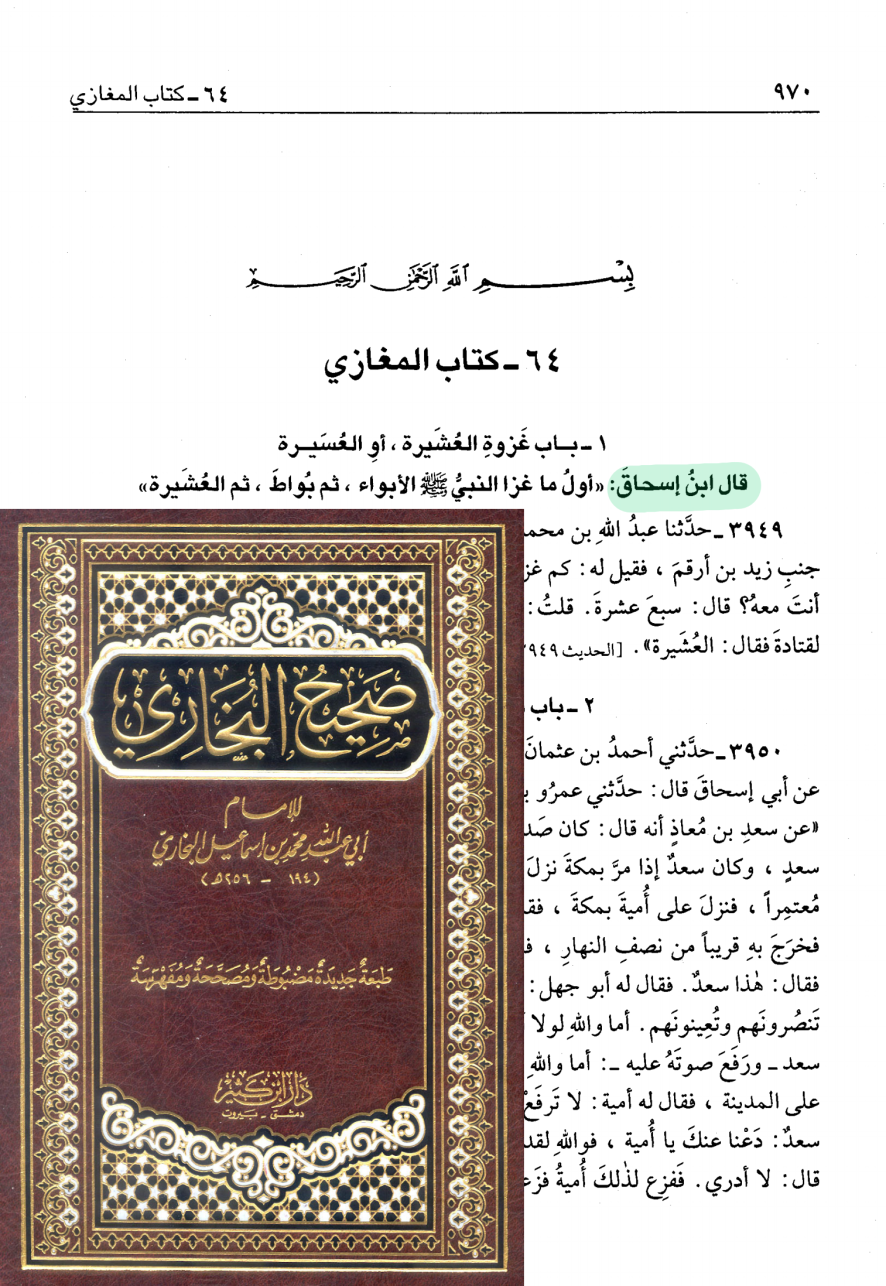 ٦٤ ـ كتاب المغازي
٩٧٠
بِسْمِ ٱللَّهِ ٱلرَّحْمَٰنِ ٱلرَّحِيمِ
٦٤ ـ كتاب المغازي
١ ـ بـاب غَزوةِ العُشَيرة ، أوِ العُسَيـرة
قال ابنُ إسحاقَ: «أولُ ما غزا النبيُّ ﷺ الأبواء ، ثم بُواطَ ، ثم العُشَيرة»
٣٩٤٩ ـ حدَّثنا عبدُ اللهِ بن محمد
جنبِ زيد بن أرقمَ ، فقيل له: كم غز
أنتَ معهُ؟ قال: سبعَ عشرةَ. قلتُ:
لقتادةَ فقال: العُشَيرة». [الحديث ٣٩٤٩
٢ ـ باب
٣٩٥٠ ـ حدَّثني أحمدُ بن عثمانَ
عن أبي إسحاقَ قال: حدَّثني عمرُو ب
«عن سعدِ بن مُعاذٍ أنه قال: كان صَد
سعدٍ ، وكان سعدٌ إذا مرَّ بمكةَ نزلَ
مُعتمِراً ، فنزلَ على أُميةَ بمكةَ ، فق
فخرَجَ بهِ قريباً من نصفِ النهارِ ، ف
فقال: هٰذا سعدٌ. فقال له أبو جهل:
تَنصُرونَهم وتُعِينونَهم. أما واللهِ لولا
سعد ـ ورَفَعَ صوتَهُ عليه ـ: أما واللهِ
على المدينة ، فقال له أمية: لا تَرفَعْ
سعدٌ: دَعْنا عنكَ يا أُمية ، فواللهِ لقد
قال: لا أدري. فَفزِع لذٰلكَ أُميةُ فزَع
صَحِيحُ البُخَارِي
للإمام
أبي عبد الله محمد بن إسماعيل البخاري
(١٩٤ – ٢٥٦هـ)
طبعَةٌ جَدِيدَةٌ مَضبُوطَةٌ وَمُصَحَّحَةٌ وَمُفَهْرَسَةٌ
دار ابن كثير
دمشق - بيروت